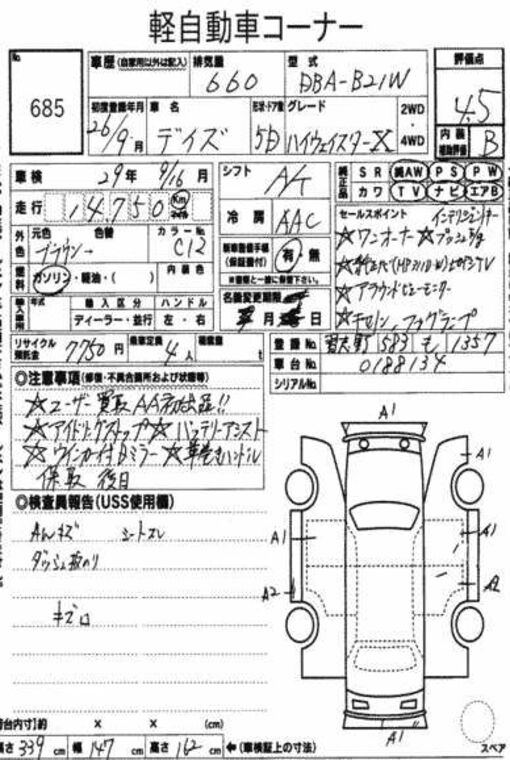 軽自動車コーナー
No.
685
車歴 (自家用以外は記入) 排気量 660 型式 DBA-B21W
評価点 4.5
内装補助評価 B
初度登録年月 26/9月 車名 デイズ 形状・ドア数 5D グレード ハイウェイスターX 2WD・4WD
車検 29年 9/16月
シフト AT
純正品 SR 純AW PS PW
カワ TV ナビ エアB
走行 14,750 Km マイル
冷房 AAC
セールスポイント インテリジェントキー
☆ワンオーナー ☆プッシュs/g
外色 元色 ブラウン 色替 カラーNo. C12
新車整備手帳(保証書付) 有・無
※書類と一緒に保管下さい。
燃料 ガソリン・軽油・( ) 内装色
☆アラウンドビューモニター
輸入車 年式 輸入区分 ハンドル
ディーラー・並行 左・右
名義変更期限 月 日
リサイクル預託金 7750円 乗車定員 4人 積載量 t
登録No. 583 も 1357
車台No. 0188134
シリアルNo.
◎注意事項 (修復・不具合箇所および状態等)
☆ユーザー買取AA初出品!!
☆アイドリングストップ ☆バッテリーアシスト
☆ウインカー付ドアミラー ☆革巻きハンドル
保取 後日
◎検査員報告 (USS使用欄)
A1 A1 A1 A1 A2 A2 A1
スペア
荷台内寸)約 × × (cm)
長さ 339 cm 幅 147 cm 高さ 162 cm ←(車検証上の寸法)